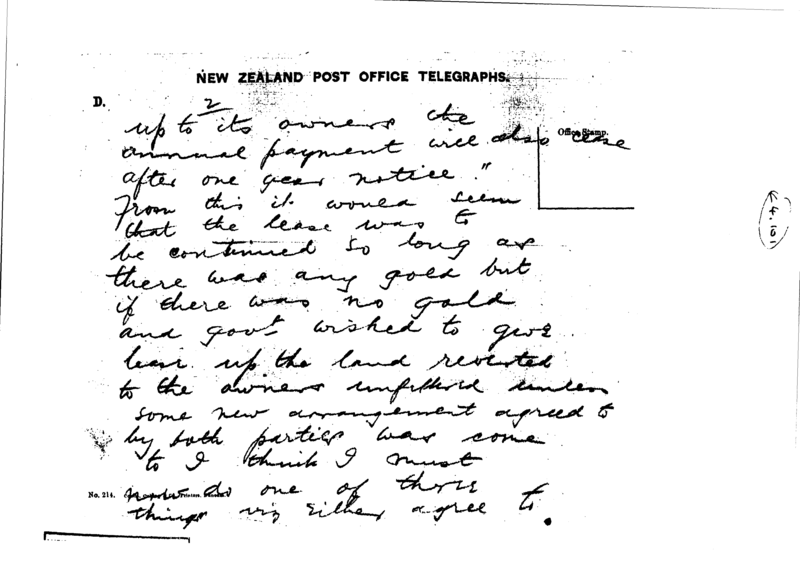 NEW ZEALAND POST OFFICE TELEGRAPHS.
D.
2
Office Stamp.
up to its owners the
annual payment will also cease
after one year notice."
From this it would seem
that the lease was to
be continued so long as
there was any gold but
if there was no gold
and govt wished to give
lease up the land reverted
to the owners unfettered unless
some new arrangement agreed to
by both parties was come
to I think I must
No. 214.
now do one of those
things viz either agree to